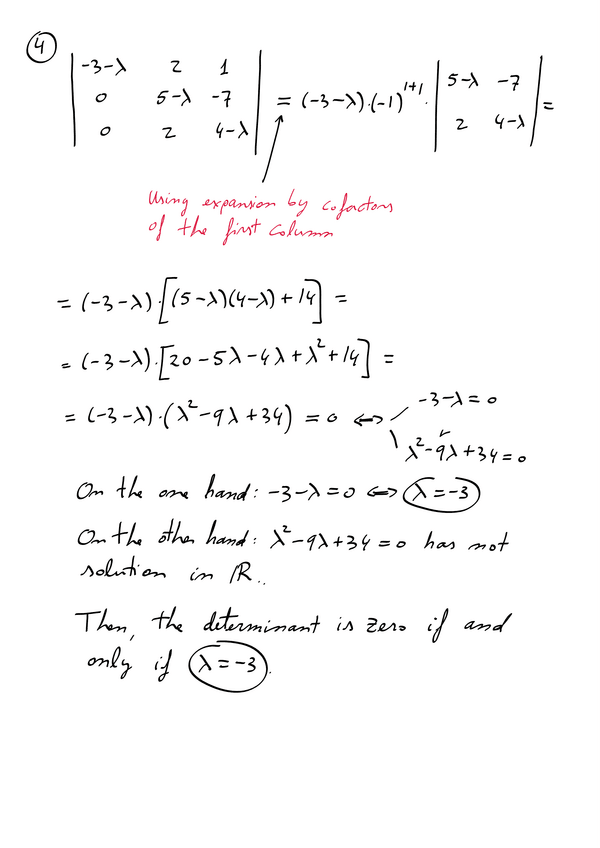 4
| -3-λ 2 1 |
| 0 5-λ -7 | = (-3-λ)·(-1)^{1+1}· | 5-λ -7 | =
| 0 2 4-λ | | 2 4-λ |
Using expansion by cofactors
of the first column
= (-3-λ)·[(5-λ)(4-λ)+14] =
= (-3-λ)·[20-5λ-4λ+λ²+14] =
= (-3-λ)·(λ²-9λ+34) = 0 ⟺ -3-λ=0
λ²-9λ+34=0
On the one hand: -3-λ=0 ⟺ λ=-3
On the other hand: λ²-9λ+34=0 has not
solution in ℝ..
Then, the determinant is zero if and
only if λ=-3.